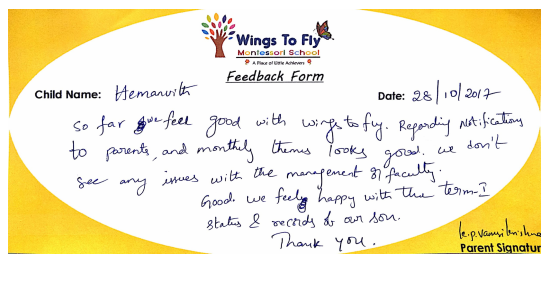 Wings To Fly
Montessori School
A Place of Little Achievers
Feedback Form
Child Name: Hemanvith
Date: 28/10/2017
So far we feel good with wings to fly. Regarding Notifications
to parents, and monthly thems looks good. we don't
see any issues with the management & faculty.
Good. we feel happy with the term-I
status & records of our son.
Thank you.
Parent Signatur